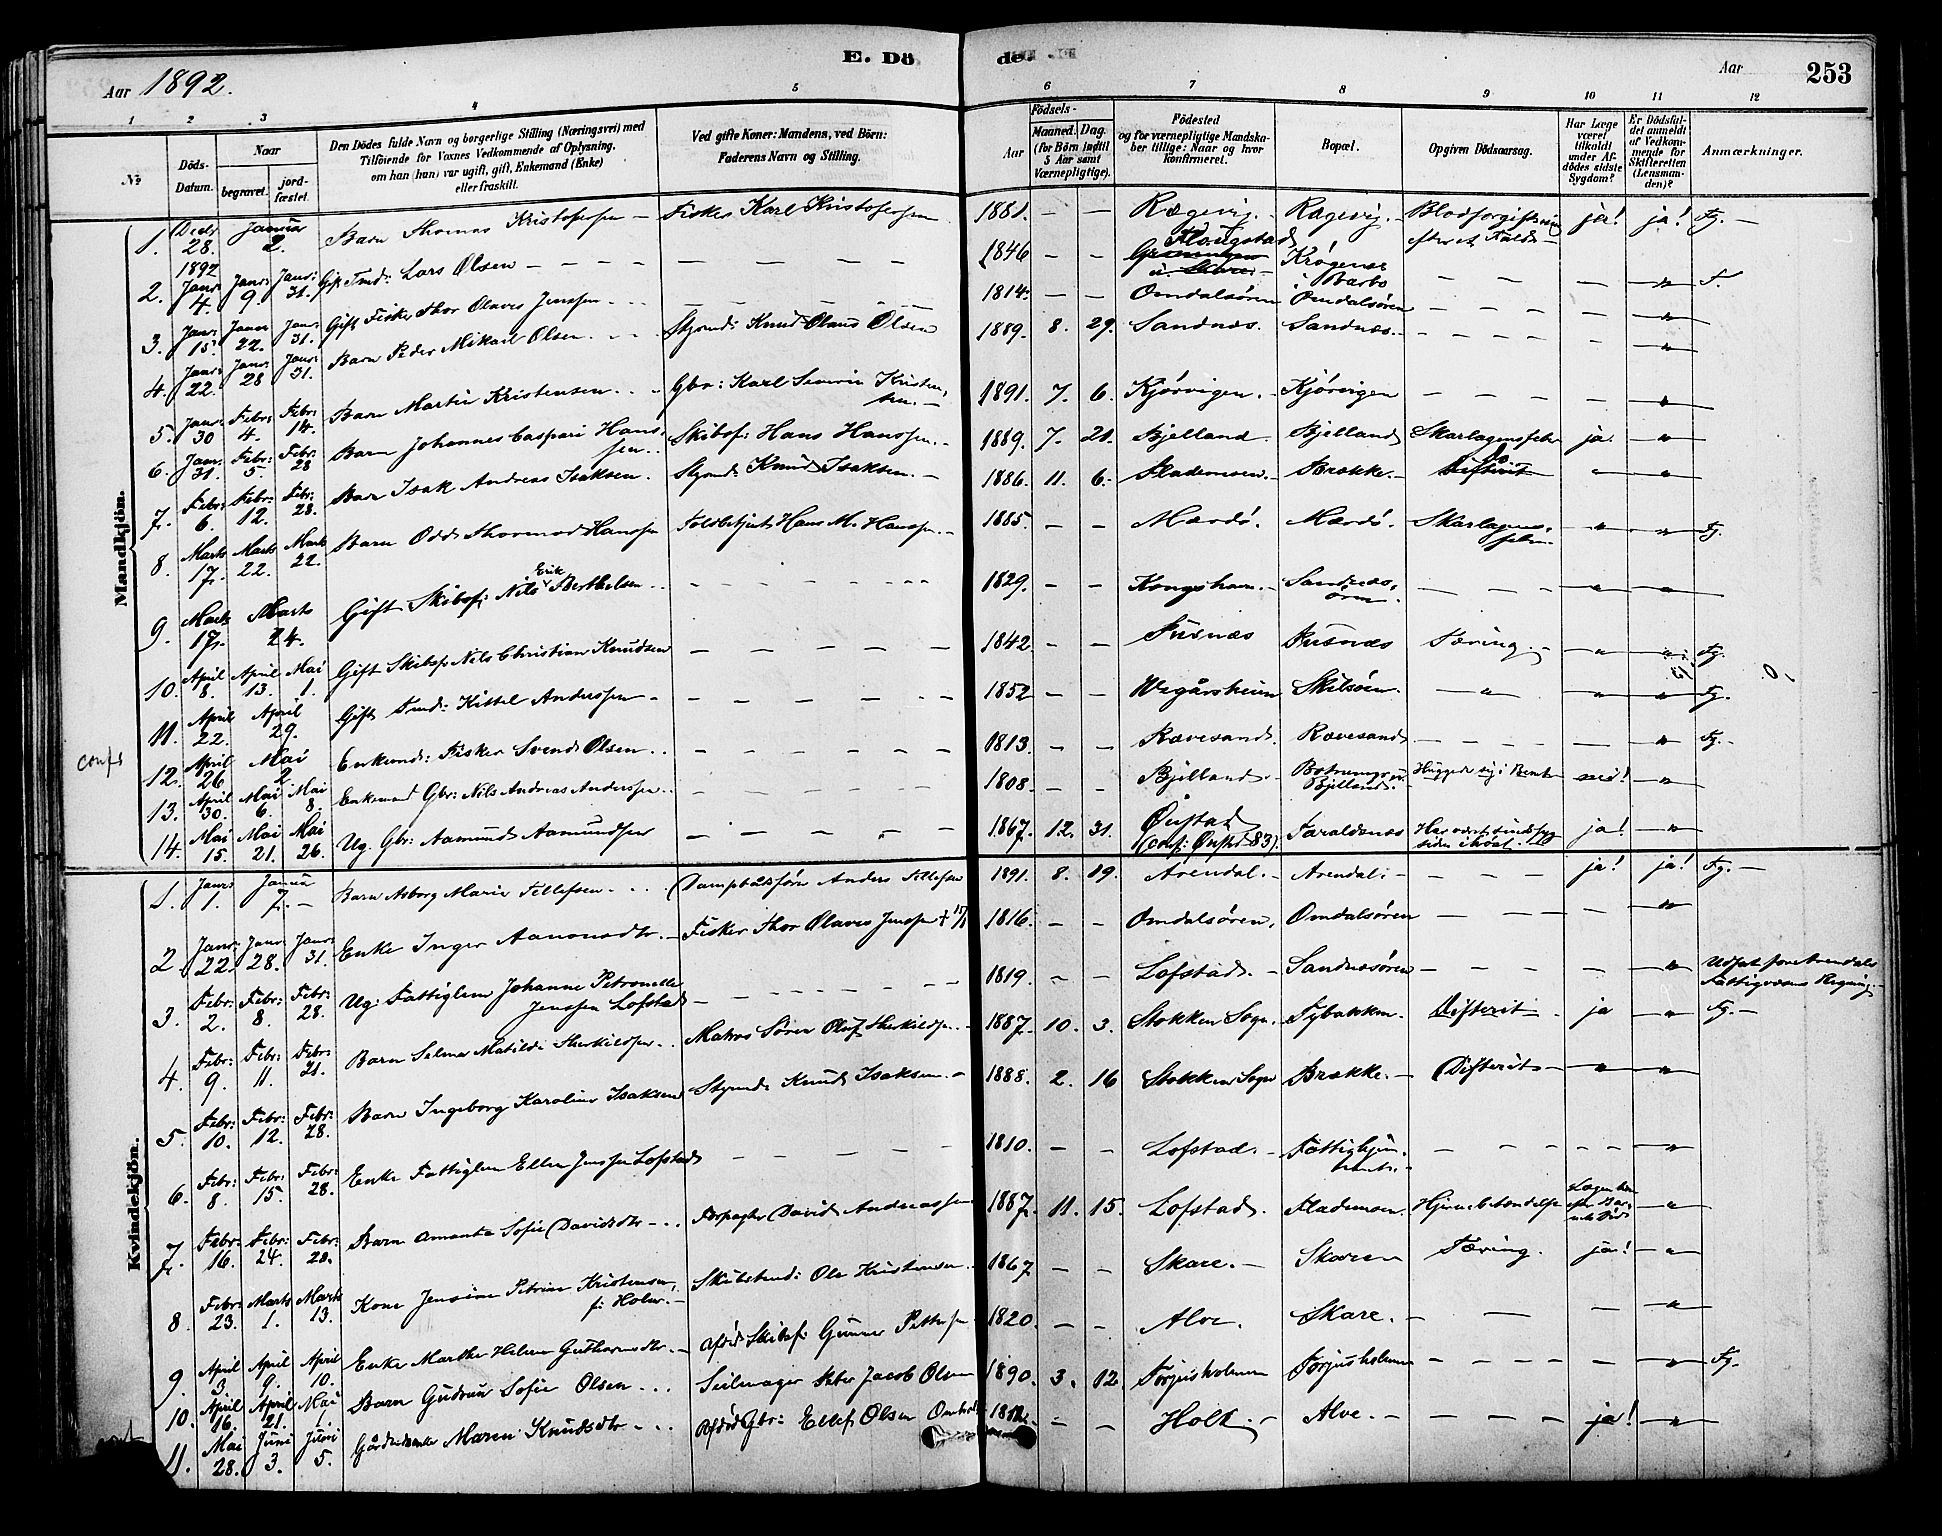 E. Dö
de.
Aar 1892.
Aar
253
1 2 3 4 5 6 7 8 9 10 11 12
No
Döds-Datum.
Naar
begravet.
jord-fæstet.
Den Dödes fulde Navn og borgerlige Stilling (Næringsvei) med
Tilföiende for Voxnes Vedkommende af Oplysning,
om han (hun) var ugift, gift, Enkemand (Enke)
eller fraskilt.
Ved gifte Koner: Mandens, ved Börn:
Faderens Navn og Stilling.
Födsels-
Aar
Maaned. Dag.
(for Börn indtil
5 Aar samt
Værnepligtige).
Födested
og for værnepligtige Mandska-
ber tillige: Naar og hvor
konfirmeret.
Bopæl.
Opgiven Dödsaarsag.
Har Læge
været
tilkaldt
under Af-
dödes sidste
Sygdom?
Er Dödsfal-
det anmeldt
af Vedkom-
mende for
Skifteretten
(Lensman-
den)?
Anmærkninger.
Mandkjön.
1. Decbr 28. Januar 2. Barn Thomas Kristofersen — Fisker Karl Kristofersen 1881. — — Rægevig. — Rægevig. — Blodforgiftning efter et Fald — ja! ja! Fg. —
1892
2. Janr 4. Janr: 9. Janr: 31. Gift Tmd: Lars Olsen — — — — 1846 — — Flougstad Krøgenes i Barbo — — — " — F.
3. Janr: 15. Janr 22. Jan: 31. Gift Fisker Thor Olaves Jenssen — — — 1814. — — Omdalsören Omdalsören — — — "
4. Janr: 22. Janr: 28 Janr: 31. Barn Peder Mikael Olsen. — Styrmd: Knud Olaus Olsen 1889. 8. 29. Sandnæs. Sandnæs. — — — "
5. Janr: 30 Febr: 4. Febr: 14. Barn Martin Kristensen. — Gbr: Karl Severin Kristensen. — 1891. 7. 6. Kjörvigen. — Kjörvigen — — — "
6. Janr: 31. Febr: 5 Febr: 28 Barn Johannes Caspari Hanssen. — Skibsf: Hans Hanssen. — 1889. 7. 21. Bjelland. Bjelland Skarlagensfeber ja. "
7. Febr: 6. Febr: 12. Febr: 28. Barn Isak Andreas Isaksen. Styrmd: Knud Isaksen. — 1886. 11. 6. Fladernsen. — Brække. — Do " "
8. Marts 17. Marts 22. Marts 22. Barn Odd Thormod Hanssen Toldbetjent Hans M. Hanssen. — 1885. — — Mærdö. Mærdö. Skarlagensfeber " " Fg.
9. Marts 17. Marts 24. Gift Skibsf: Nils Erik Berthelsen — — — 1829. — — Kongshavn. — Sandnæsören — — " "
10. April 8. April 13. Mai 1. Gift Skibsf: Nils Christian Knudsen — — — 1842 — — Pusnæs Pusnæs Tæring. — " " Fg.
11. April 22. April 29. Gift Tmd: Kittel Anderssen — — — — 1852 — — Vegårsheien Skilsöen. — " — " " Fg.
12. April 26 Mai 2. Enkemd: Fisker Svend Olsen — — — 1813. — — Rævesand. Rævesand — — — " Fg. —
confr
13. April 30. Mai 6. Mai 8. Enkemand Gbr: Nils Andreas Anderssen — — — 1808. — — Bjelland. Bjelland. Huggede sig i Benet nei! "
14. Mai 15. Mai 21. Mai 26. Ug. Gbr: Aamund Aamundsen — — — 1867. 12. 31. Öiestad (conf: Öiestd 83). Taraldsnæs Har været sindssyg siden i Höst. ja! "
Kvindekjön.
1. Janr: 1. Januar 7. — Barn Asborg Marie Tellefsen. — Dampbådförer Anders Tellefsen 1891. 8. 19. Arendal. — Arendal. — — — ja! ja! Fg. —
2 Janr: 22. Janr: 28. Janr: 31. Enke Inger Aanonsdtr. — Fisker Thor Olaves Jenssen † 1816. — — Omdalsören. Omdalsören — — — "
3. Febr: 2. Febr: 8. Febr: 28. Ug: Fattiglem Johanne Petronelle Jenssen Lofstad — — — 1819. — — Lofstad. — Sandnæsören — — — " Udsat for Arendals Fattigvæsens Regning. —
4. Febr: 9. Febr: 11. Febr: 21. Barn Selma Matilde Therkildsen. — Matros Sören Oluf Therkildsen. — 1887. 10. 3. Stokken Sogn. Tybakken. Difterit. ja " Fg. —
5. Febr: 10. Febr: 12. Febr: 28. Barn Ingeborg Karoline Isaksen Styrmd: Knud Isaksen. — 1888. 2. 16 Stokken Sogn Brække. — Difterit — " "
6. Febr: 8. Febr: 15. Febr: 28. Enke Fattiglem Ellen Jenssen Lofstad — — — 1810. — — Lofstad. — Fattighjem — — — "
7. Febr: 16. Febr: 24. Febr: 28. Barn Amanta Sofie Davidsdtr — Forpagter David Andreassen 1887. 11. 15. Lofstad. Fladernsen. Hjernebetændelse "
8. Febr: 23. Marts 1. Marts 13. Kone Jensine Petrine Kristensen, f: Holm. — Skibstmd: Ole Kristensen. 1867 — — Skare. — Skaren Tæring. ja! "
9. April 3. April 9. April 10. Enke Marthe Helene Guthormsdtr. — Afdöd Skibsf: Gunner Pettersen 1820. — — Alve. Skare. — — — "
10. April 16. April 21. Mai 1. Barn Gudrun Sofie Olsen — Seilmager Peter Jacob Olsen 1890. 3. 12. Torjusholmen Torjusholmen — — — " Fg.
11. Mai 28. Juni 3. Juni 5. Gårdmandsenke Maren Knudsdtr — Afdöd Gbr: Ellef Olsen 1812. — — Holt. — Alve. — — ja! "